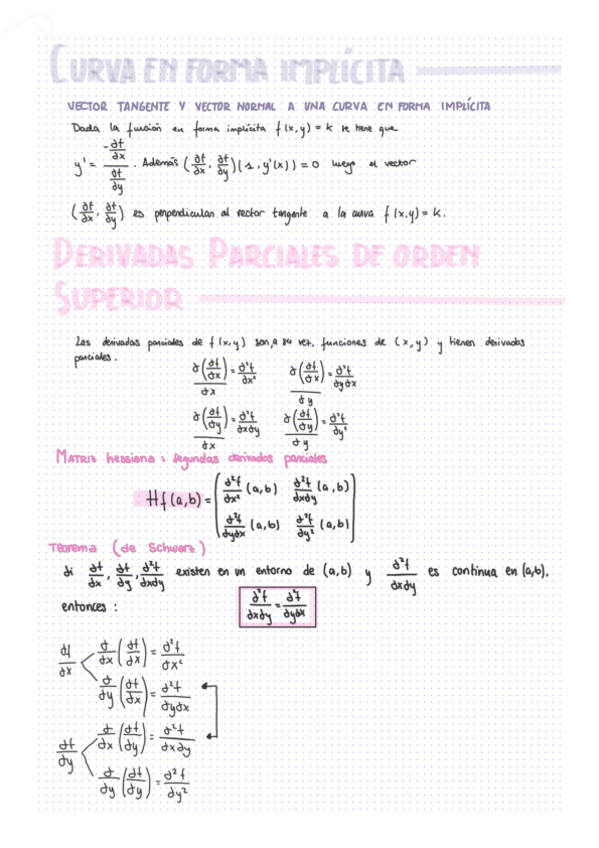 CURVA EN FORMA IMPLÍCITA
VECTOR TANGENTE Y VECTOR NORMAL A UNA CURVA EN FORMA IMPLÍCITA
Dada la función en forma implícita f(x,y) = k se tiene que
y' = (-∂f/∂x)/(∂f/∂y) . Además (∂f/∂x, ∂f/∂y)(1, y'(x)) = 0 luego el vector
(∂f/∂x, ∂f/∂y) es perpendicular al vector tangente a la curva f(x,y) = k.
DERIVADAS PARCIALES DE ORDEN
SUPERIOR
Las derivadas parciales de f(x,y) son, a su vez, funciones de (x,y) y tienen derivadas
parciales.
∂(∂f/∂x)/∂x = ∂²f/∂x² ∂(∂f/∂x)/∂y = ∂²f/∂y∂x
∂(∂f/∂y)/∂x = ∂²f/∂x∂y ∂(∂f/∂y)/∂y = ∂²f/∂y²
MATRIZ hessiana : segundas derivadas parciales
Hf(a,b) = ( ∂²f/∂x² (a,b) ∂²f/∂x∂y (a,b)
∂²f/∂y∂x (a,b) ∂²f/∂y² (a,b) )
Teorema (de Schwarz)
Si ∂f/∂x, ∂f/∂y, ∂²f/∂x∂y existen en un entorno de (a,b) y ∂²f/∂x∂y es continua en (a,b),
entonces : ∂²f/∂x∂y = ∂²f/∂y∂x
∂f/∂x
∂/∂x (∂f/∂x) = ∂²f/∂x²
∂/∂y (∂f/∂x) = ∂²f/∂y∂x
∂f/∂y
∂/∂x (∂f/∂y) = ∂²f/∂x∂y
∂/∂y (∂f/∂y) = ∂²f/∂y²